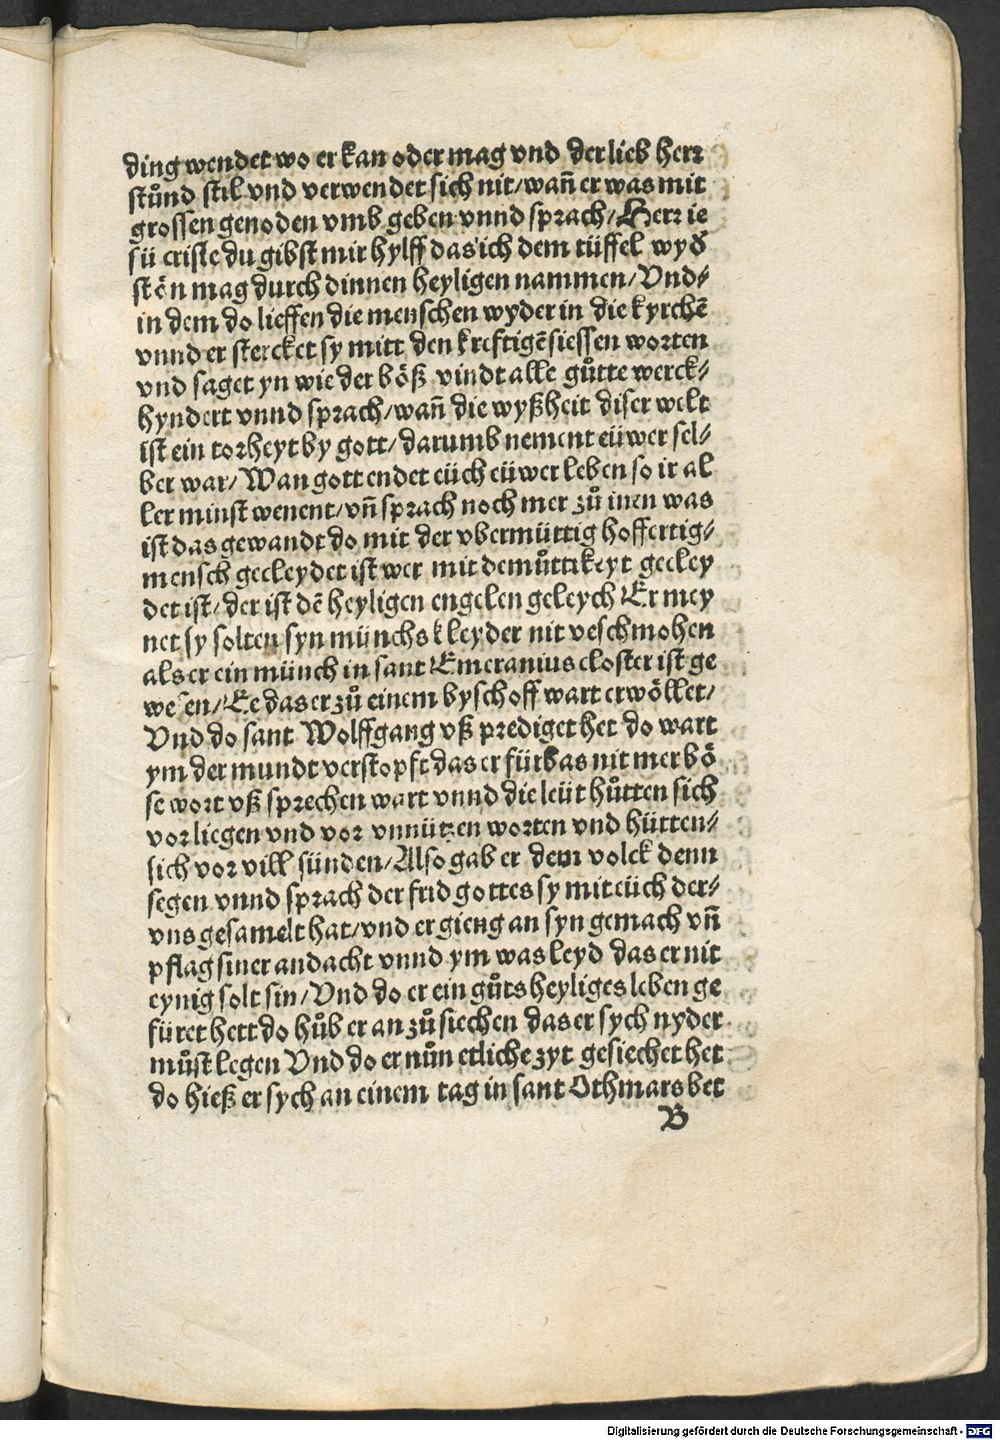 ding wendet wo er kan oder mag vnd der lieb herr
stůnd stil vnd verwendet sich nit/wañ er was mit
grossen genoden vmb geben vnnd sprach/Herr ie
sü criste du gibst mir hylff das ich dem tüffel wyđ
stēn mag durch dinnen heyligen nammen/Vnd⸗
in dem do lieffen die menschen wyder in die kyrchē
vnnd er stercket sy mitt den kreftigē siessen worten
vnd saget yn wie der böß vindt alle gůtte werck⸗
hyndert vnnd sprach/wañ die wyßheit diser welt
ist ein torheyt by gott/darumb nement eüwer sel⸗
ber war/Wan gott endet eüch eüwer leben so ir al
ler minst wenent/vñ sprach noch mer zů inen was
ist das gewandt do mit der vbermüttig hoffertig⸗
mensch gecleydet ist wer mit demůttikeyt gecley
det ist/der ist dē heyligen engelen geleych Er mey
net sy solten syn münchs kleyder nit veschmohen
als er ein münch in sant Emeranius closter ist ge
wesen/Ee das er zů einem byschoff wart erwöllet/
Vnd do sant Wolffgang vß prediget het do wart
ym der mundt verstopft das er fürbas nit mer bö
se wort vß sprechen wart vnnd die leüt hůtten sich
vor liegen vnd vor vnnützen worten vnd hütten⸗
sich vor vill sünden/Also gab er dem volck denn
segen vnnd sprach der frid gottes sy mit eüch der⸗
vns gesamelt hat/vnd er gieng an syn gemach vñ
pflag siner andacht vnnd ym was leyd das er nit
eynig solt sin/Vnd do er ein gůts heyliges leben ge
füret hett do hůb er an zů siechen das er sych nyder
můst legen Vnd do er nůn etliche zyt gesiechet het
do hieß er sych an einem tag in sant Othmars bet
B
Digitalisierung gefördert durch die Deutsche Forschungsgemeinschaft - DFG